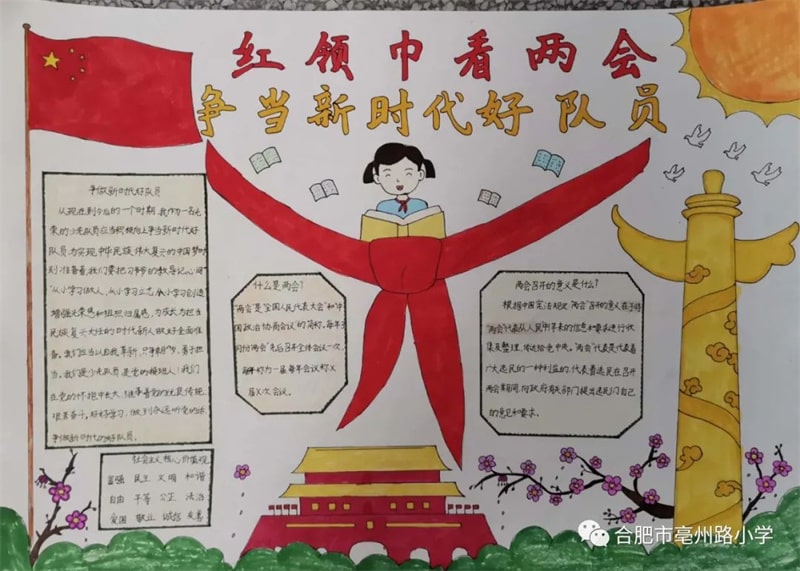 红领巾看两会
争当新时代好队员
争做新时代好队员
从现在到今后的一个时期,我作为一名光
荣的少先队员应当积极向上争当新时代好
队员,为实现中华民族伟大复兴的中国梦时
刻准备着,我们要把习爷爷的教导记心间
"从小学习做人,从小学习立志,从小学习创造
增强光荣感和组织归属感,为成长为担当
民族复兴大任的时代新人做好全面准
备。我们应当以自我革新,只争朝夕,勇于担
当。我们是少先队员是党的接班人!我们
在党的怀抱中长大,继承着党的优良传统
好好学习,
争做新时代的好队员。
社会主义核心价值观
富强 民主 文明 和谐
自由 平等 公正 法治
爱国 敬业 诚信 友善
什么是两会?
"两会"是"全国人民代表大会"和"中
国政治协商会议"的简称,每年3
月份"两会"先后召开全体会议一次,
每5年称为一届,每年会议称X
届X次会议。
两会召开的意义是什么?
根据中国宪法规定:"两会"召开的意义在于将
"两会"代表从人民中得来的信息和要求进行收
集及整理,传达给党中央。"两会"代表是代表着
广大选民的一种利益的,代表着选民在召开
两会期间,向政府有关部门提出选民们自己
的意见和要求。
合肥市亳州路小学